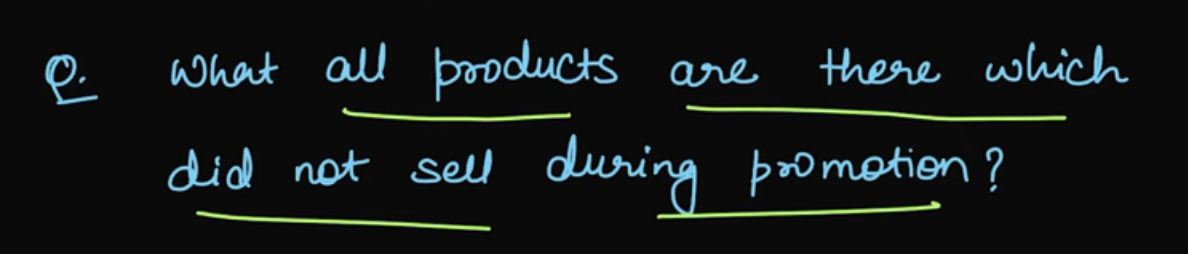 Q. What all products are there which
did not sell during promotion?